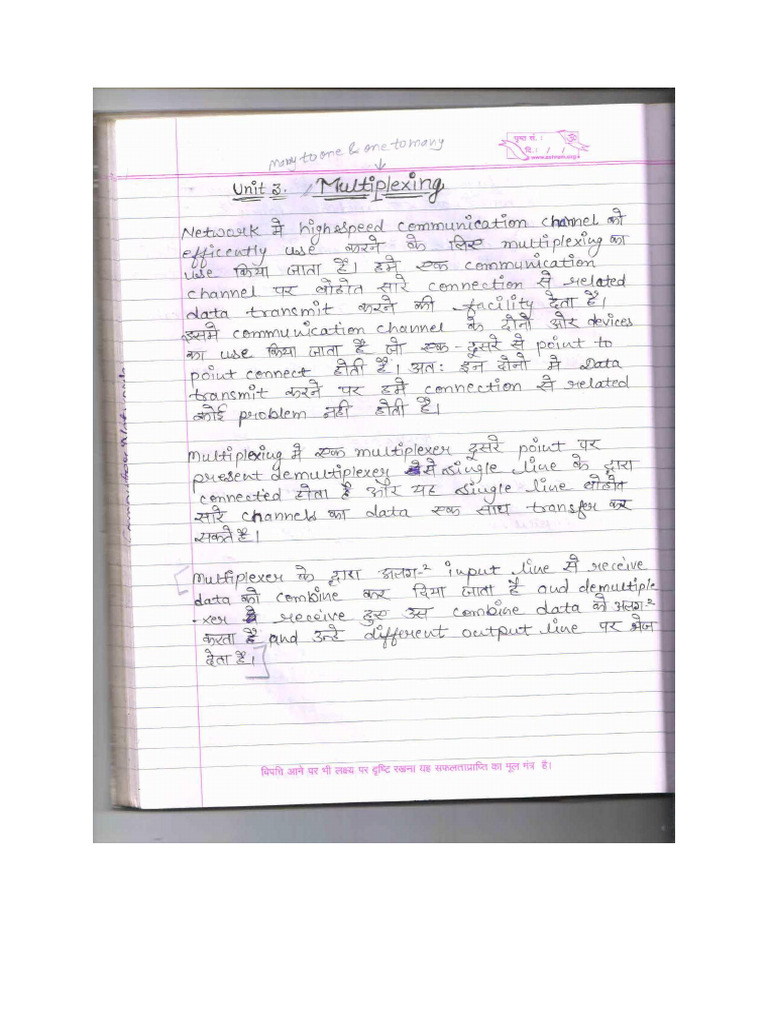 पृष्ठ सं. :
दि.: / /
www.ashram.org
many to one & one to many
Unit 3. Multiplexing
Network मे highspeed communication channel को
efficently use करने के लिए multiplexing का
use किया जाता है। हमे एक communication
channel पर बोहोत सारे connection से related
data transmit करने की facility देता है।
इसमे communication channel के दोनो और devices
का use किया जाता है जो एक-दूसरे से point to
point connect होती है। अतः इन दोनो मे Data
transmit करने पर हमे connection से related
कोई problem नही होती है।
Multiplexing मे एक multiplexer दूसरे point पर
present demultiplexer से single line के द्वारा
connected होता है और यह single line बोहोत
सारे channels का data एक साथ transfer कर
सकते है।
Multiplexer के द्वारा अलग-2 input line से receive
data को combine कर दिया जाता है and demultiple
-xer receive हुए उस combine data को अलग-2
करता है and उन्हे different output line पर भेज
देता है।
विपत्ति आने पर भी लक्ष्य पर दृष्टि रखना यह सफलताप्राप्ति का मूल मंत्र है।